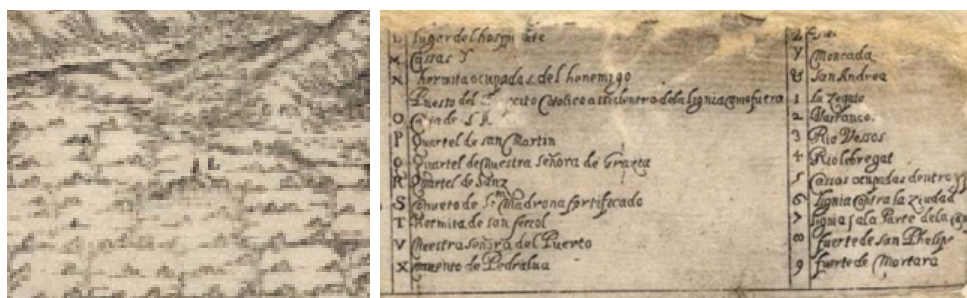 L
L lugar del hospi
M Cassas
N hermita ocupadas del henemigo
Puesto del Catolico dentro de la lignia como fuera
O Casa de
P Quartel de san Martin
Q Quartel de nuestra señora de Gratia
R Quartel de Sanz
S Conveto de Sta Madrona fortificado
T Hermita de san ferriol
V Nuestra señora del Puerto
X convento de Pedralva
Z
Y Moncada
& San Andrea
1 la Zequio
2 Barranco
3 Rio Vessos
4 Rio lobregat
5 Cassas ocupadas dentro
6 lignia contra la ziudad
7 lignia a la Parte de la
8 fuerte de san Phelipe
9 fuerte de Mortara